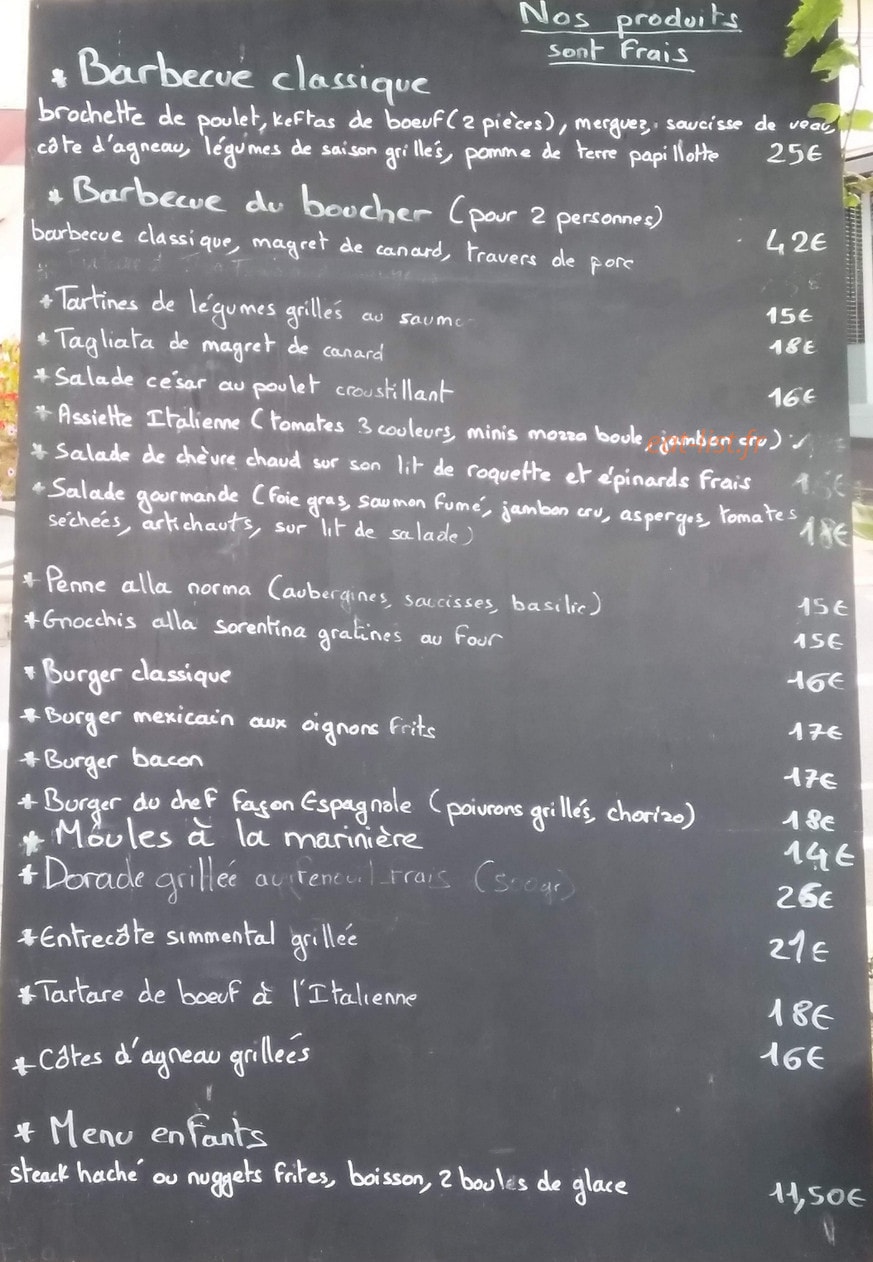 Nos produits
sont Frais
* Barbecue classique
brochette de poulet, keftas de boeuf (2 pièces), merguez, saucisse de veau,
côte d'agneau, légumes de saison grillés, pomme de terre papillotte 25€
* Barbecue du boucher (pour 2 personnes)
barbecue classique, magret de canard, travers de porc 42€
* Tartines de légumes grillés au 15€
* Tagliata de magret de canard 18€
* Salade césar au poulet croustillant 16€
* Assiette Italienne (tomates 3 couleurs, minis mozza boule, jambon cru)
* Salade de chèvre chaud sur son lit de roquette et épinards frais
* Salade gourmande (foie gras, saumon fumé, jambon cru, asperges, tomates
séchées, artichauts, sur lit de salade) 18€
* Penne alla norma (aubergines, saucisses, basilic) 15€
* Gnocchis alla sorentina gratines au four 15€
* Burger classique 16€
* Burger mexicain aux oignons frits 17€
* Burger bacon 17€
* Burger du chef façon Espagnole (poivrons grillés, chorizo) 18€
* Moules à la marinière 14€
* Dorade grillée au fenouil frais (500gr) 26€
* Entrecôte simmental grillée 21€
* Tartare de boeuf à l'Italienne 18€
* Côtes d'agneau grilleés 16€
* Menu enfants
steack haché ou nuggets frites, boisson, 2 boules de glace 11,50€